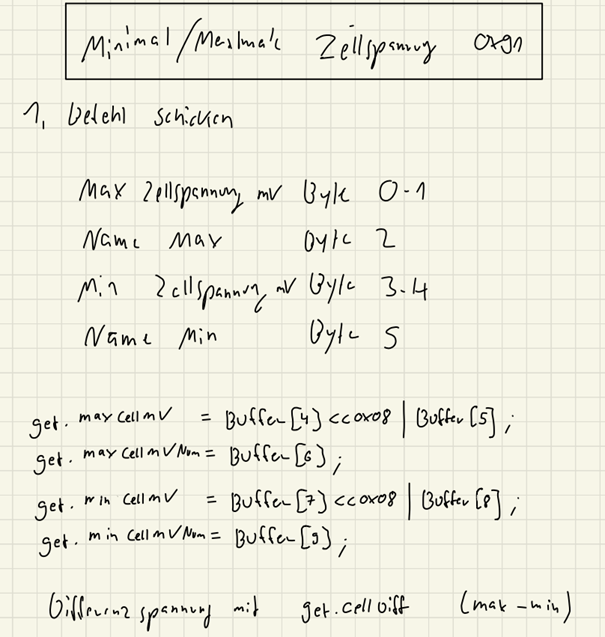 Minimal/Maximale Zellspannung 0x91
1, Befehl schicken
Max Zellspannung mV Byte 0-1
Name Max Byte 2
Min Zellspannung mV Byte 3-4
Name Min Byte 5
get.maxCellmV = Buffer[4]<<0x08 | Buffer[5];
get.maxCellmVNum = Buffer[6];
get.minCellmV = Buffer[7]<<0x08 | Buffer[8];
get.minCellmVNum = Buffer[9];
Differenzspannung mit get.cellDiff (max-min)